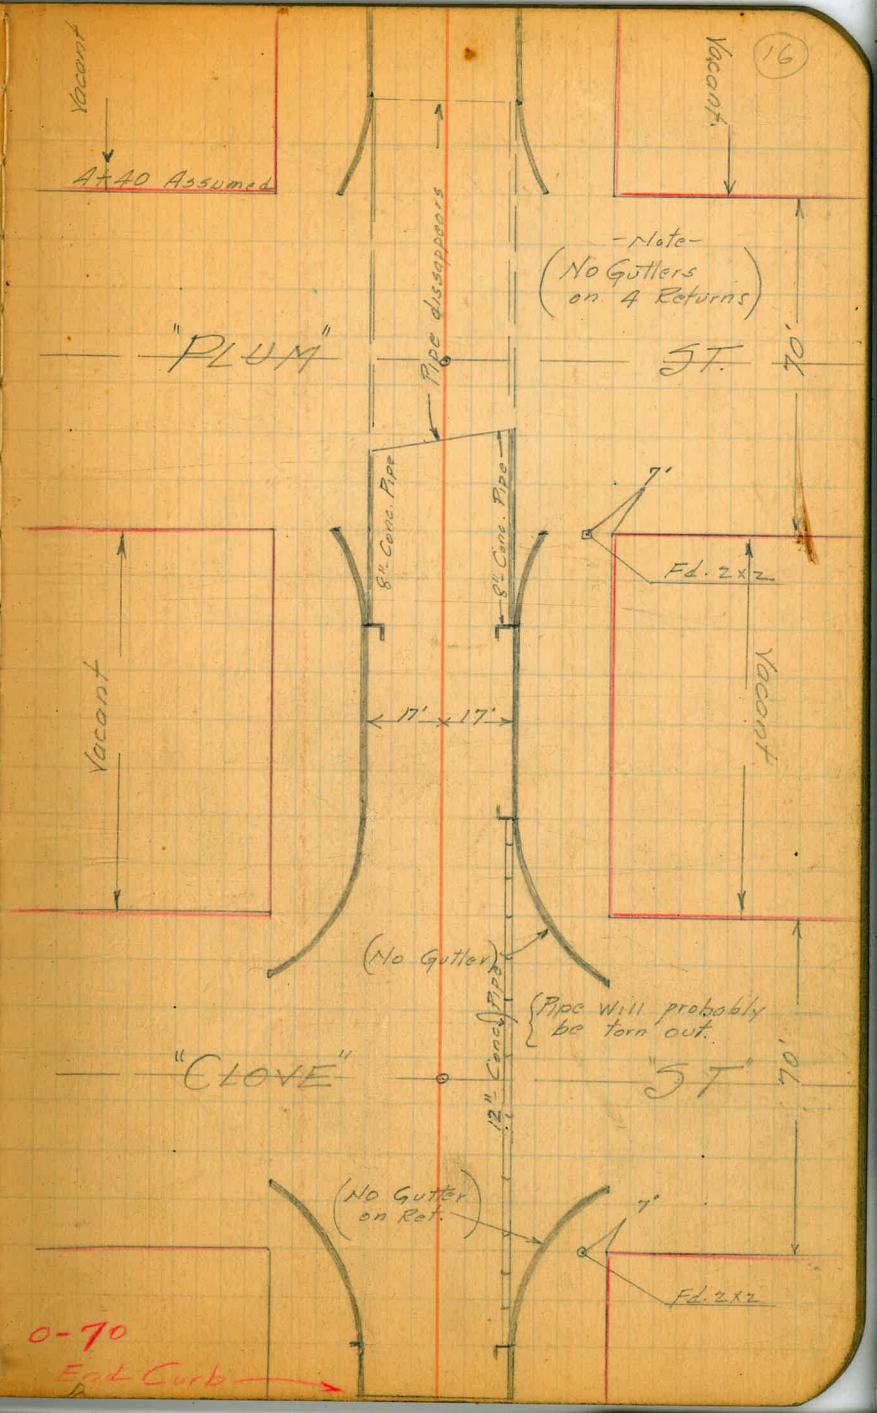 16
Vacant
Vacant.
4+40 Assumed
Pipe dissappears
-Note-
(No Gutters
on 4 Returns)
"PLUM" ST.
70'
8"- Conc. Pipe
8"- Conc. Pipe
7'
Fd. 2x2
Vacant
Vacant
17' 17'
(No Gutter)
12"- Conc. Pipe
{Pipe will probably
be torn out.
"CLOVE" "ST"
70'
(No Gutter
on Ret.)
7'
Fd. 2x2
0-70
End Curb